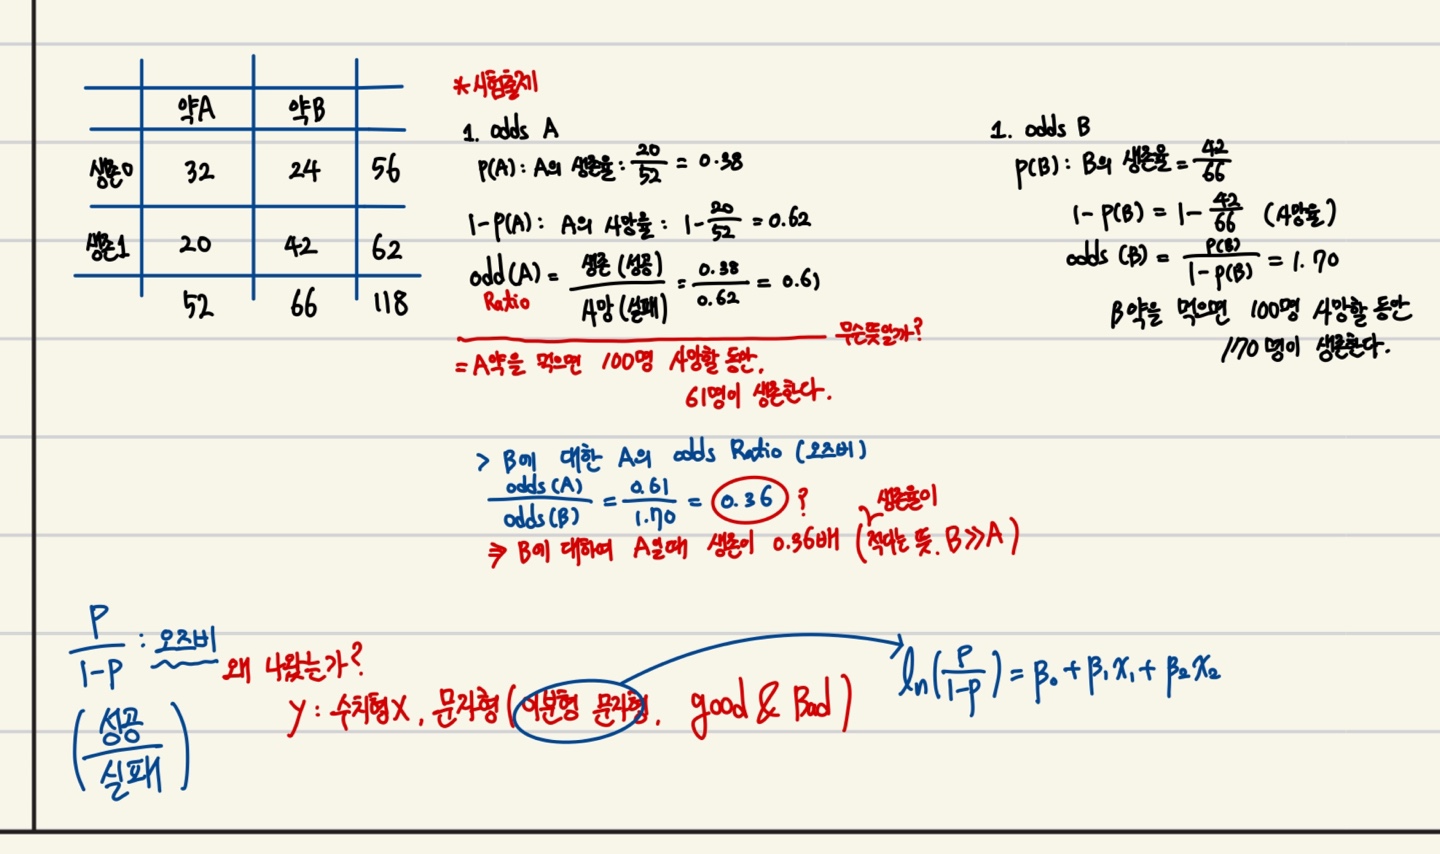 약A 약B
생존0 32 24 56
생존1 20 42 62
52 66 118
*시험출제
1. odds A
P(A): A의 생존율: 20/52 = 0.38
1-P(A): A의 사망율: 1-20/52 = 0.62
odd(A) = 생존(성공)/사망(실패) = 0.38/0.62 = 0.61
Ratio
무슨뜻일까?
= A약을 먹으면 100명 사망할 동안.
61명이 생존한다.
1. odds B
P(B): B의 생존율 = 42/66
1-P(B) = 1-42/66 (사망율)
odds (B) = P(B)/1-P(B) = 1.70
B약을 먹으면 100명 사망할 동안
170명이 생존한다.
> B에 대한 A의 odds Ratio (오즈비)
odds(A)/odds(B) = 0.61/1.70 = 0.36 ?
생존율이
⇒ B에 대하여 A일때 생존이 0.36배 (적다는 뜻. B≫A)
P/1-P : 오즈비
왜 나왔는가?
(성공/실패)
y: 수치형X, 문자형(이분형 문자형, good & Bad)
ln(P/1-P) = β₀ + β₁x₁ + β₂x₂